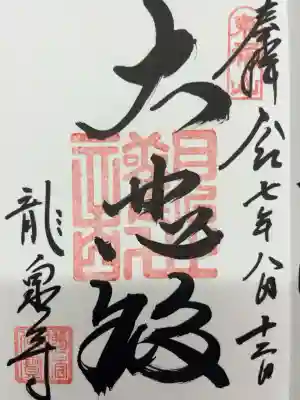 奉拝 令和七年八月十二日
大悲殿
龍泉寺